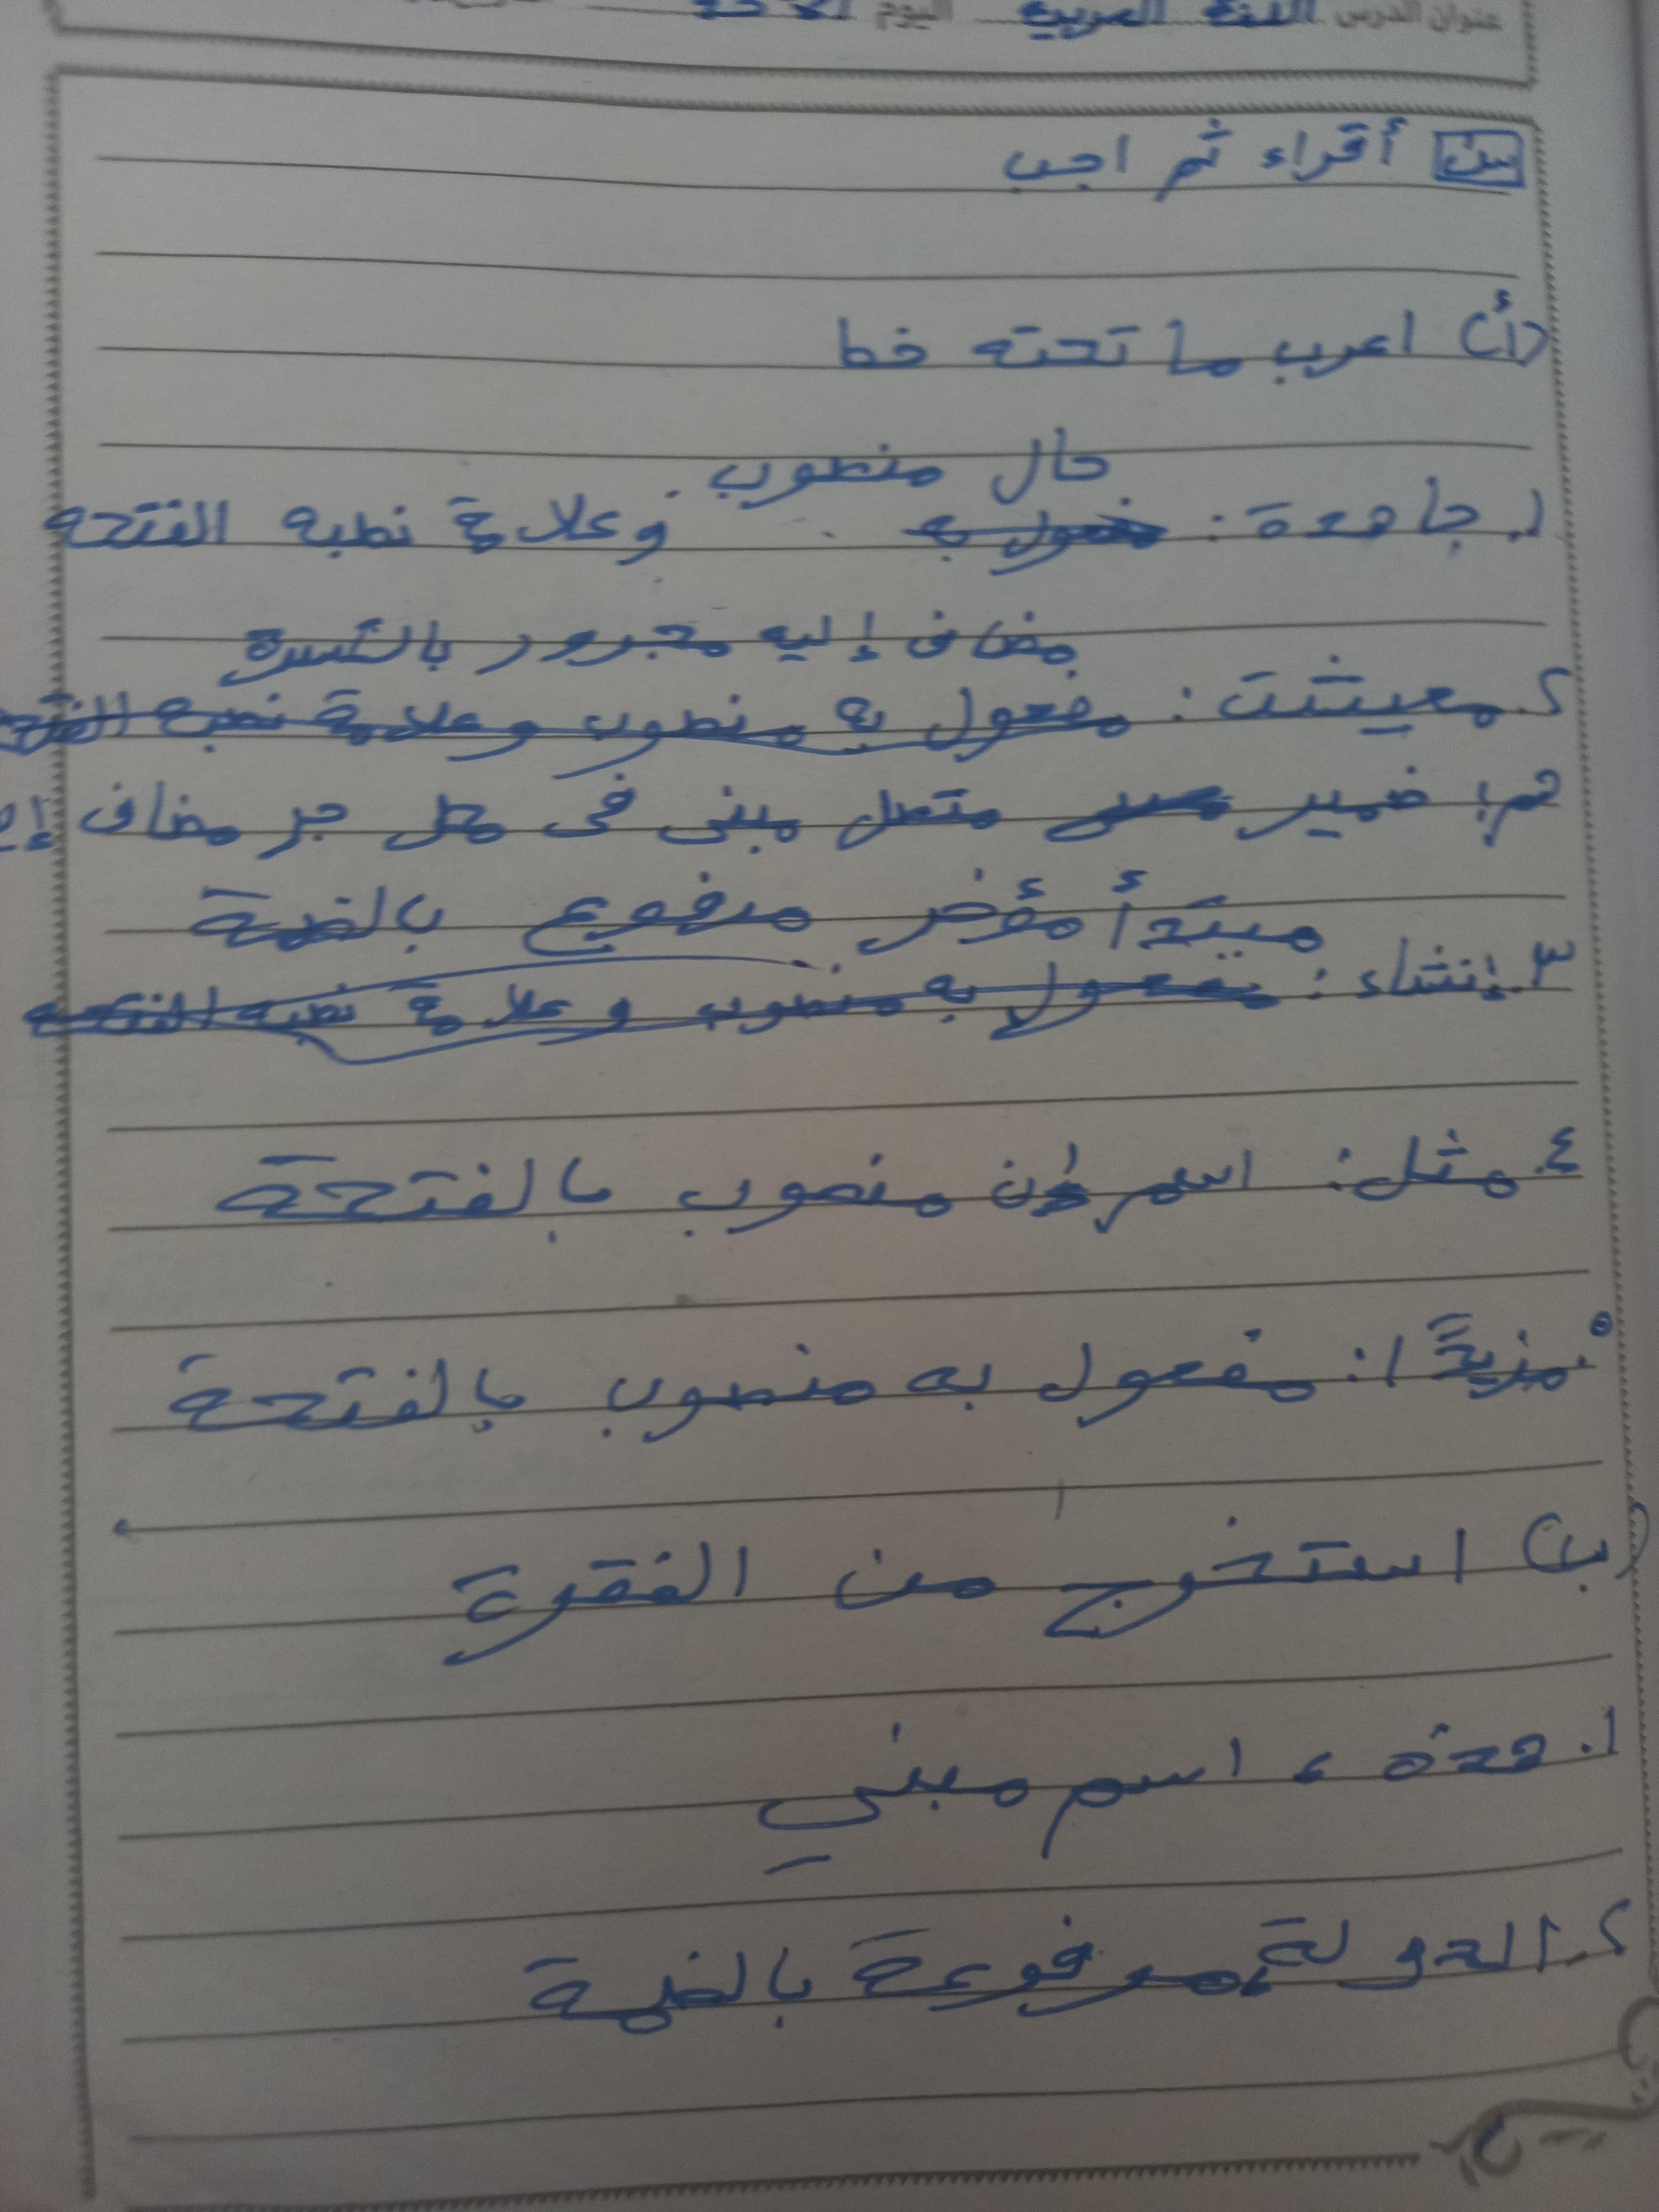 عنوان الدرس اللغة العربية اليوم الأحد
س أقراء ثم اجب
(أ) اعرب ما تحته خط
حال منصوب
١. جاهدة: مفعول به وعلامة نصبه الفتحه
مضاف إليه مجرور بالكسرة
٢. معيشت: مفعول به منصوب وعلامة نصبه الفتحه
هم: ضمير متصل مبنى فى محل جر مضاف إليه
مبتدأ مؤخر مرفوع بالضمة
٣. إنشاء: مفعول به منصوب وعلامة نصبه الفتحه
٤. مثل: اسم إن منصوب بالفتحة
٥. مزيدًا: مفعول به منصوب بالفتحة
(ب) استخرج من الفقرة
١. هذه، اسم مبني
٢. الدولة، مرفوعة بالضمة